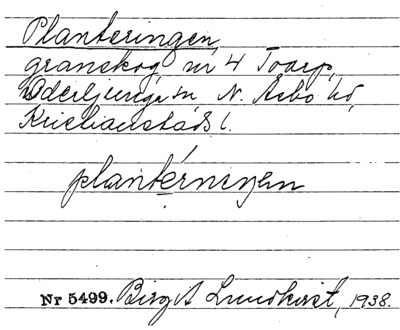 Planteringen
granskog nr 4 Toarp,
Oderljunga sn N. Åsbo hd,
Kristianstads l.
plantérnengen
Nr 5499. Birgit Lundkvist, 1938.